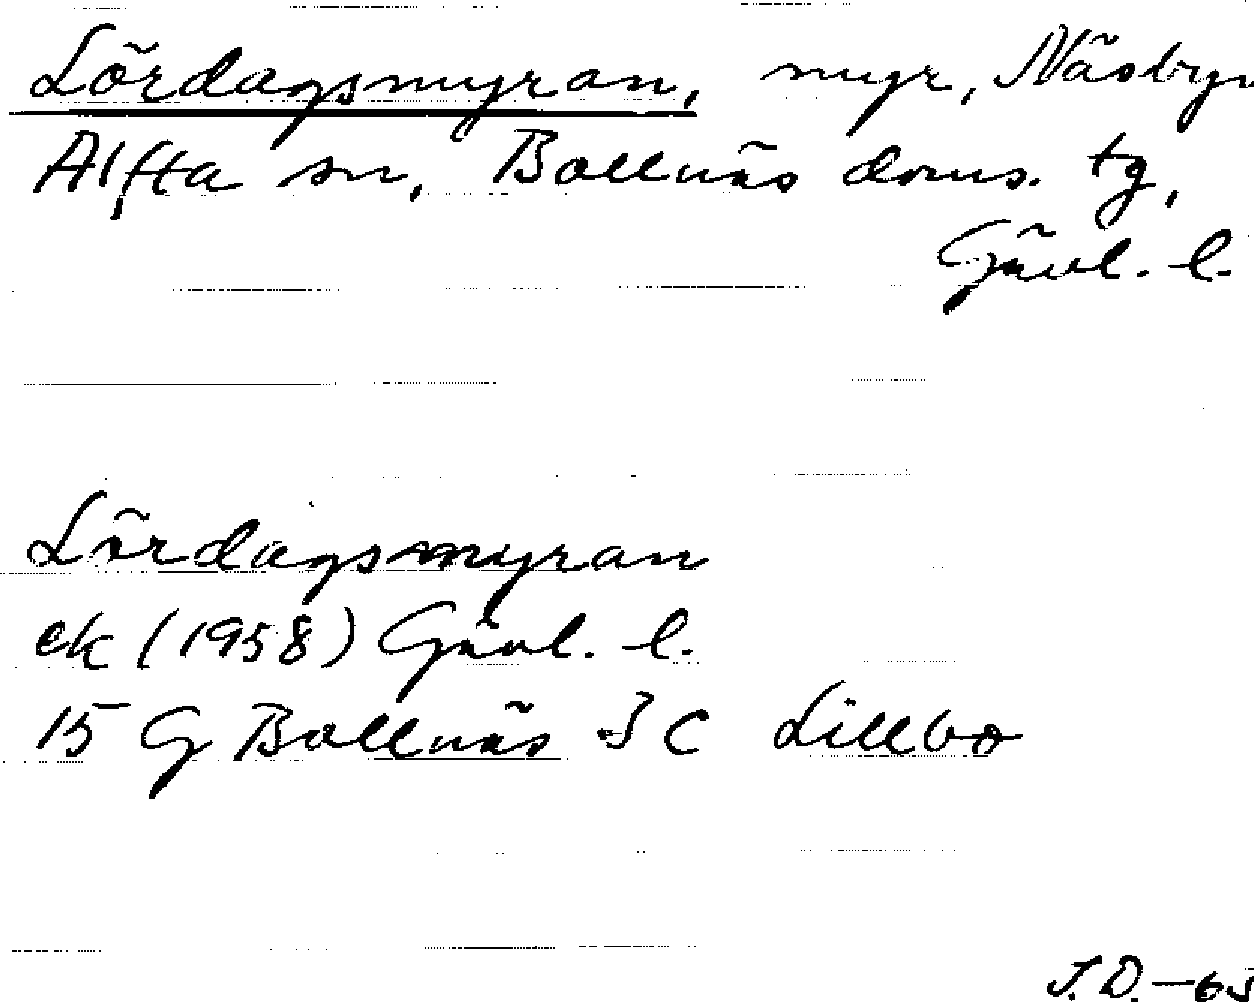 Lördagsmyran, myr, Näsbyn
Alfta sn, Bollnäs doms. tg,
Gävl. l.
Lördagsmyran
ek (1958) Gävl. l.
15 G Bollnäs 3 C Lillbo
J.D. -63